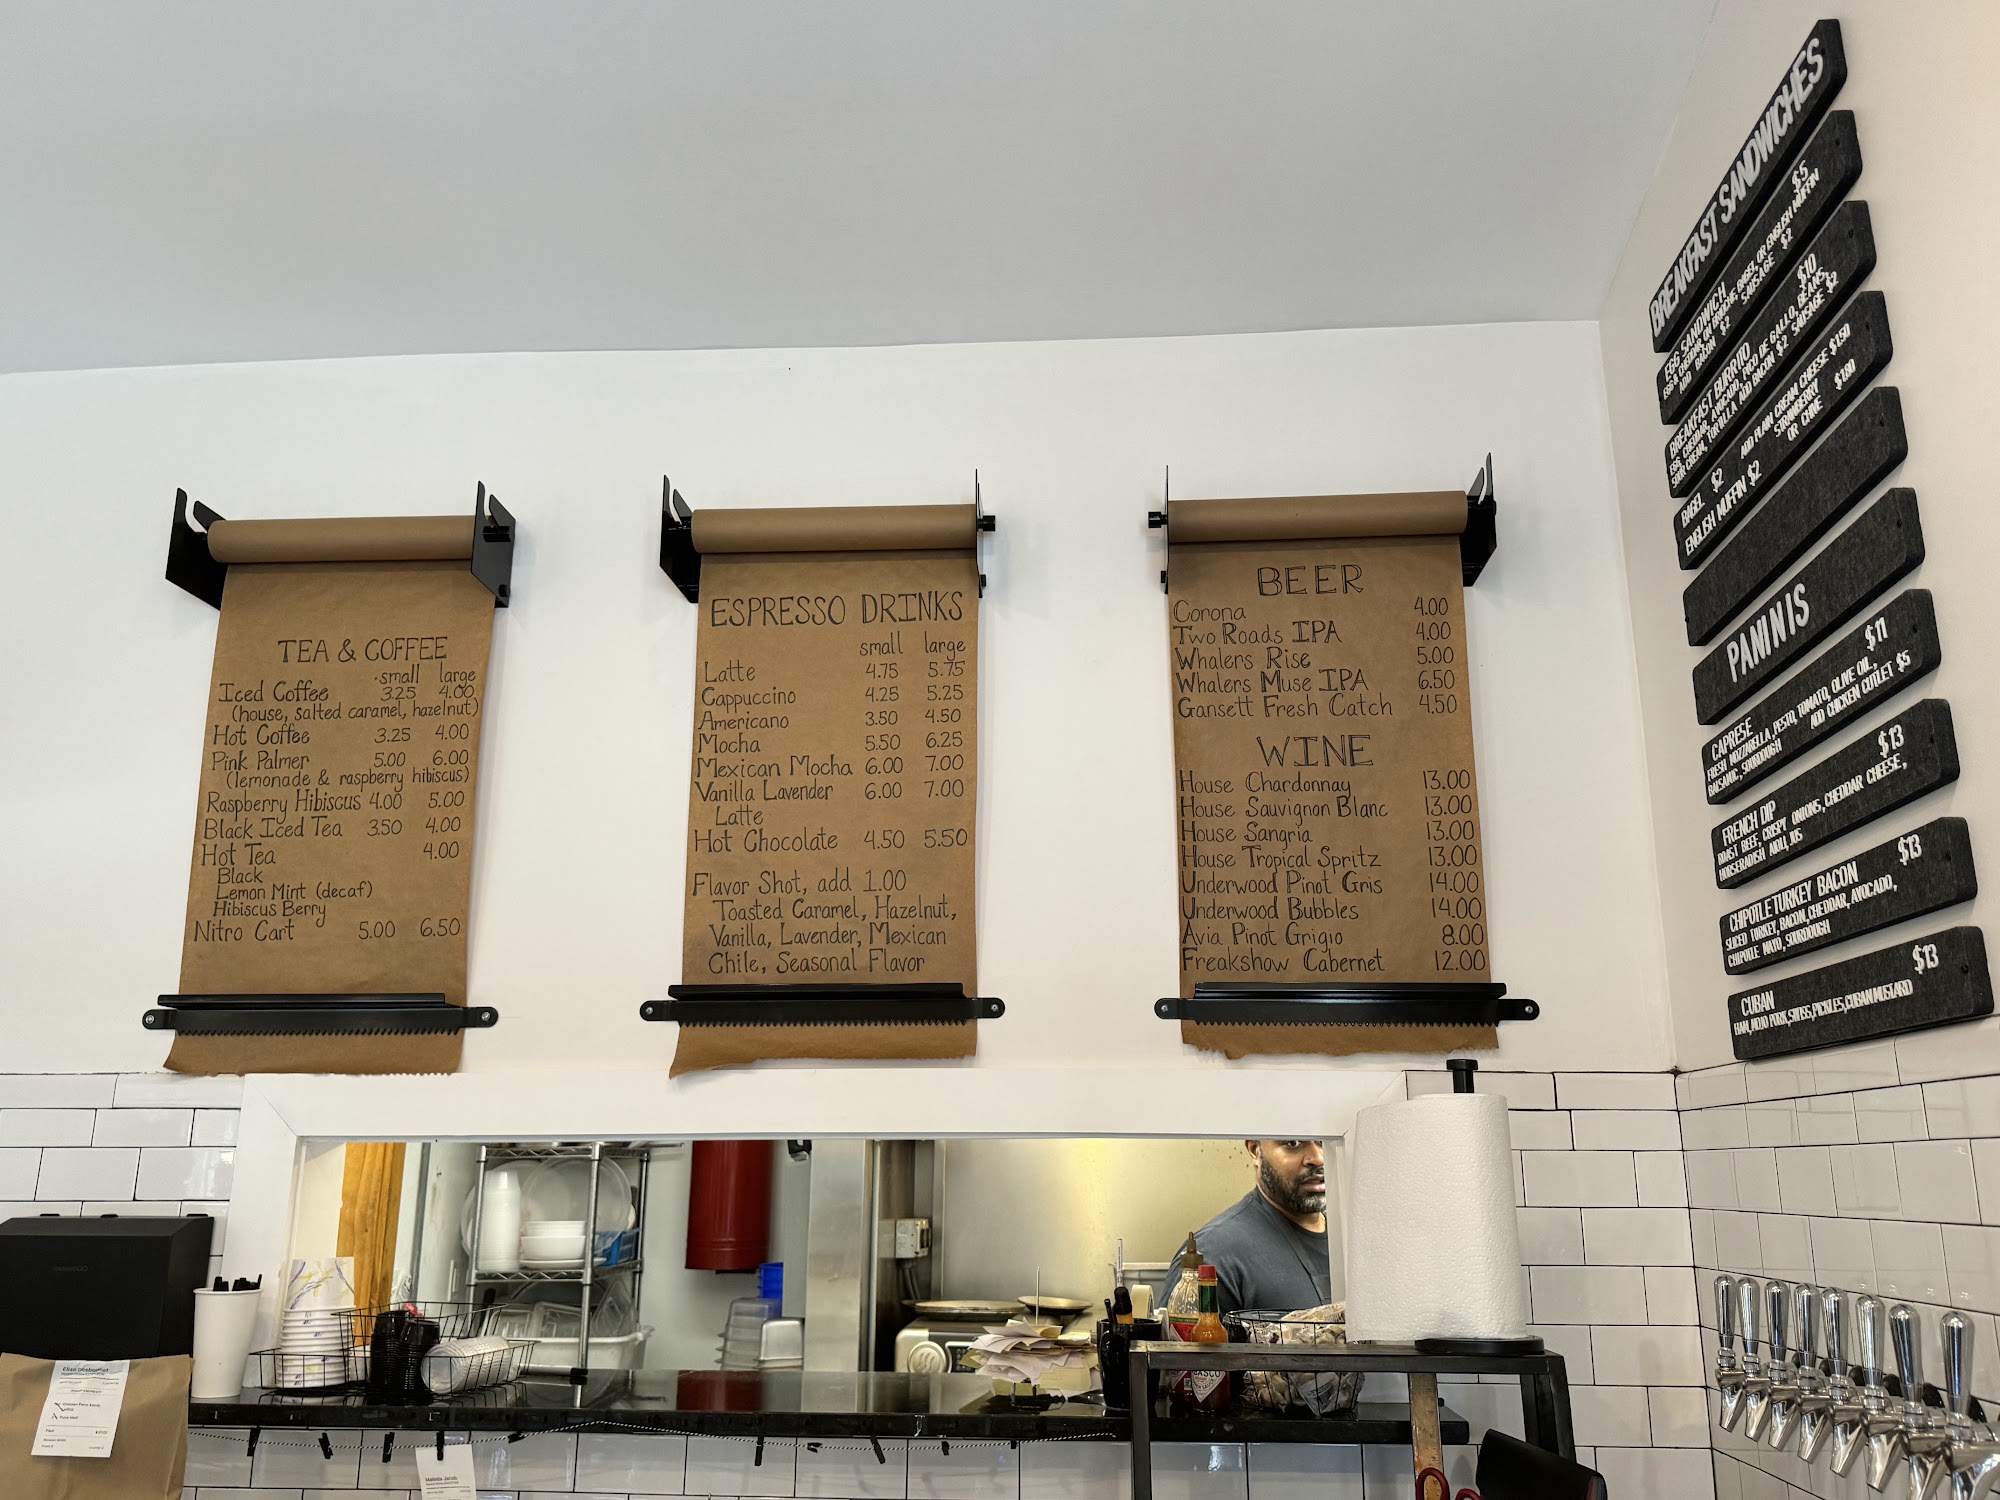 TEA & COFFEE
small large
Iced Coffee 3.25 4.00
(house, salted caramel, hazelnut)
Hot Coffee 3.25 4.00
Pink Palmer 5.00 6.00
(lemonade & raspberry hibiscus)
Raspberry Hibiscus 4.00 5.00
Black Iced Tea 3.50 4.00
Hot Tea 4.00
Black
Lemon Mint (decaf)
Hibiscus Berry
Nitro Cart 5.00 6.50
ESPRESSO DRINKS
small large
Latte 4.75 5.75
Cappuccino 4.25 5.25
Americano 3.50 4.50
Mocha 5.50 6.25
Mexican Mocha 6.00 7.00
Vanilla Lavender 6.00 7.00
Latte
Hot Chocolate 4.50 5.50
Flavor Shot, add 1.00
Toasted Caramel, Hazelnut,
Vanilla, Lavender, Mexican
Chile, Seasonal Flavor
BEER
Corona 4.00
Two Roads IPA 4.00
Whalers Rise 5.00
Whalers Muse IPA 6.50
Gansett Fresh Catch 4.50
WINE
House Chardonnay 13.00
House Sauvignon Blanc 13.00
House Sangria 13.00
House Tropical Spritz 13.00
Underwood Pinot Gris 14.00
Underwood Bubbles 14.00
Avia Pinot Grigio 8.00
Freakshow Cabernet 12.00
BREAKFAST SANDWICHES
EGG SANDWICH $5
EGG & CHEDDAR, ON BRIOCHE, BAGEL OR ENGLISH MUFFIN
ADD BACON $2 SAUSAGE $2
BREAKFAST BURRITO $10
EGG, CHEDDAR, AVOCADO, PICO DE GALLO, BEANS,
SOUR CREAM, TORTILLA ADD BACON $2 SAUSAGE $2
BAGEL $2 ADD PLAIN CREAM CHEESE $1.50
STRAWBERRY $1.80
OR CHIVE
ENGLISH MUFFIN $2
PANINIS
CAPRESE $11
FRESH MOZZARELLA, PESTO, TOMATO, OLIVE OIL,
BALSAMIC, SOURDOUGH ADD CHICKEN CUTLET $5
FRENCH DIP $13
ROAST BEEF, CRISPY ONIONS, CHEDDAR CHEESE,
HORSERADISH AIOLI, JUS
CHIPOTLE TURKEY BACON $13
SLICED TURKEY, BACON, CHEDDAR, AVOCADO,
CHIPOTLE MAYO, SOURDOUGH
CUBAN $13
HAM, MOJO PORK, SWISS, PICKLES, CUBAN MUSTARD